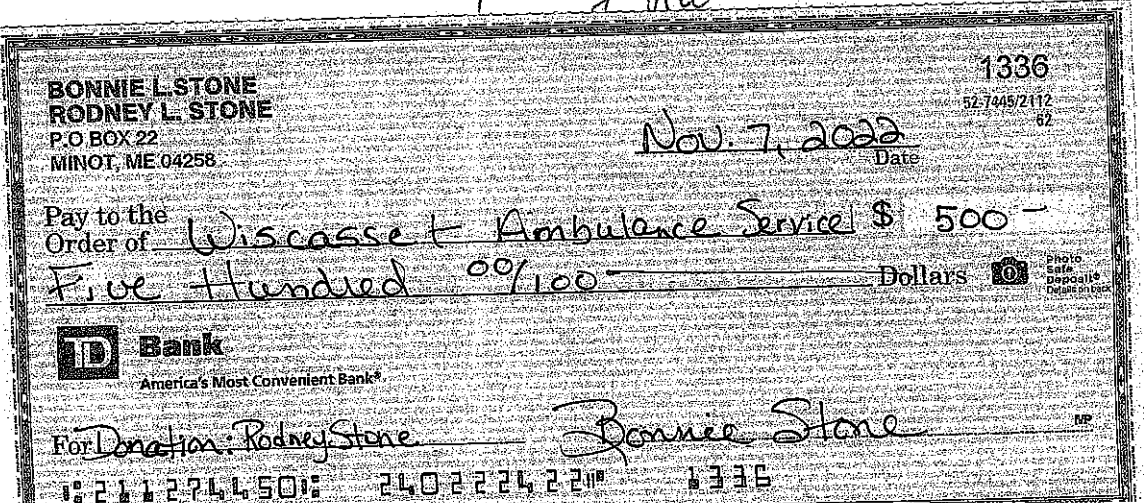 BONNIE L. STONE
RODNEY L. STONE
P.O BOX 22
MINOT, ME 04258
1336
52-7445/2112
62
Nov. 7, 2022
Date
Pay to the
Order of Wiscasset Ambulance Service $ 500 -
Five Hundred 00/100 Dollars
Photo
Safe
Deposit®
Details on back
TD Bank
America's Most Convenient Bank®
For Donation: Rodney Stone Bonnie Stone MP
⑆211274450⑆ 240222422⑈ 1336